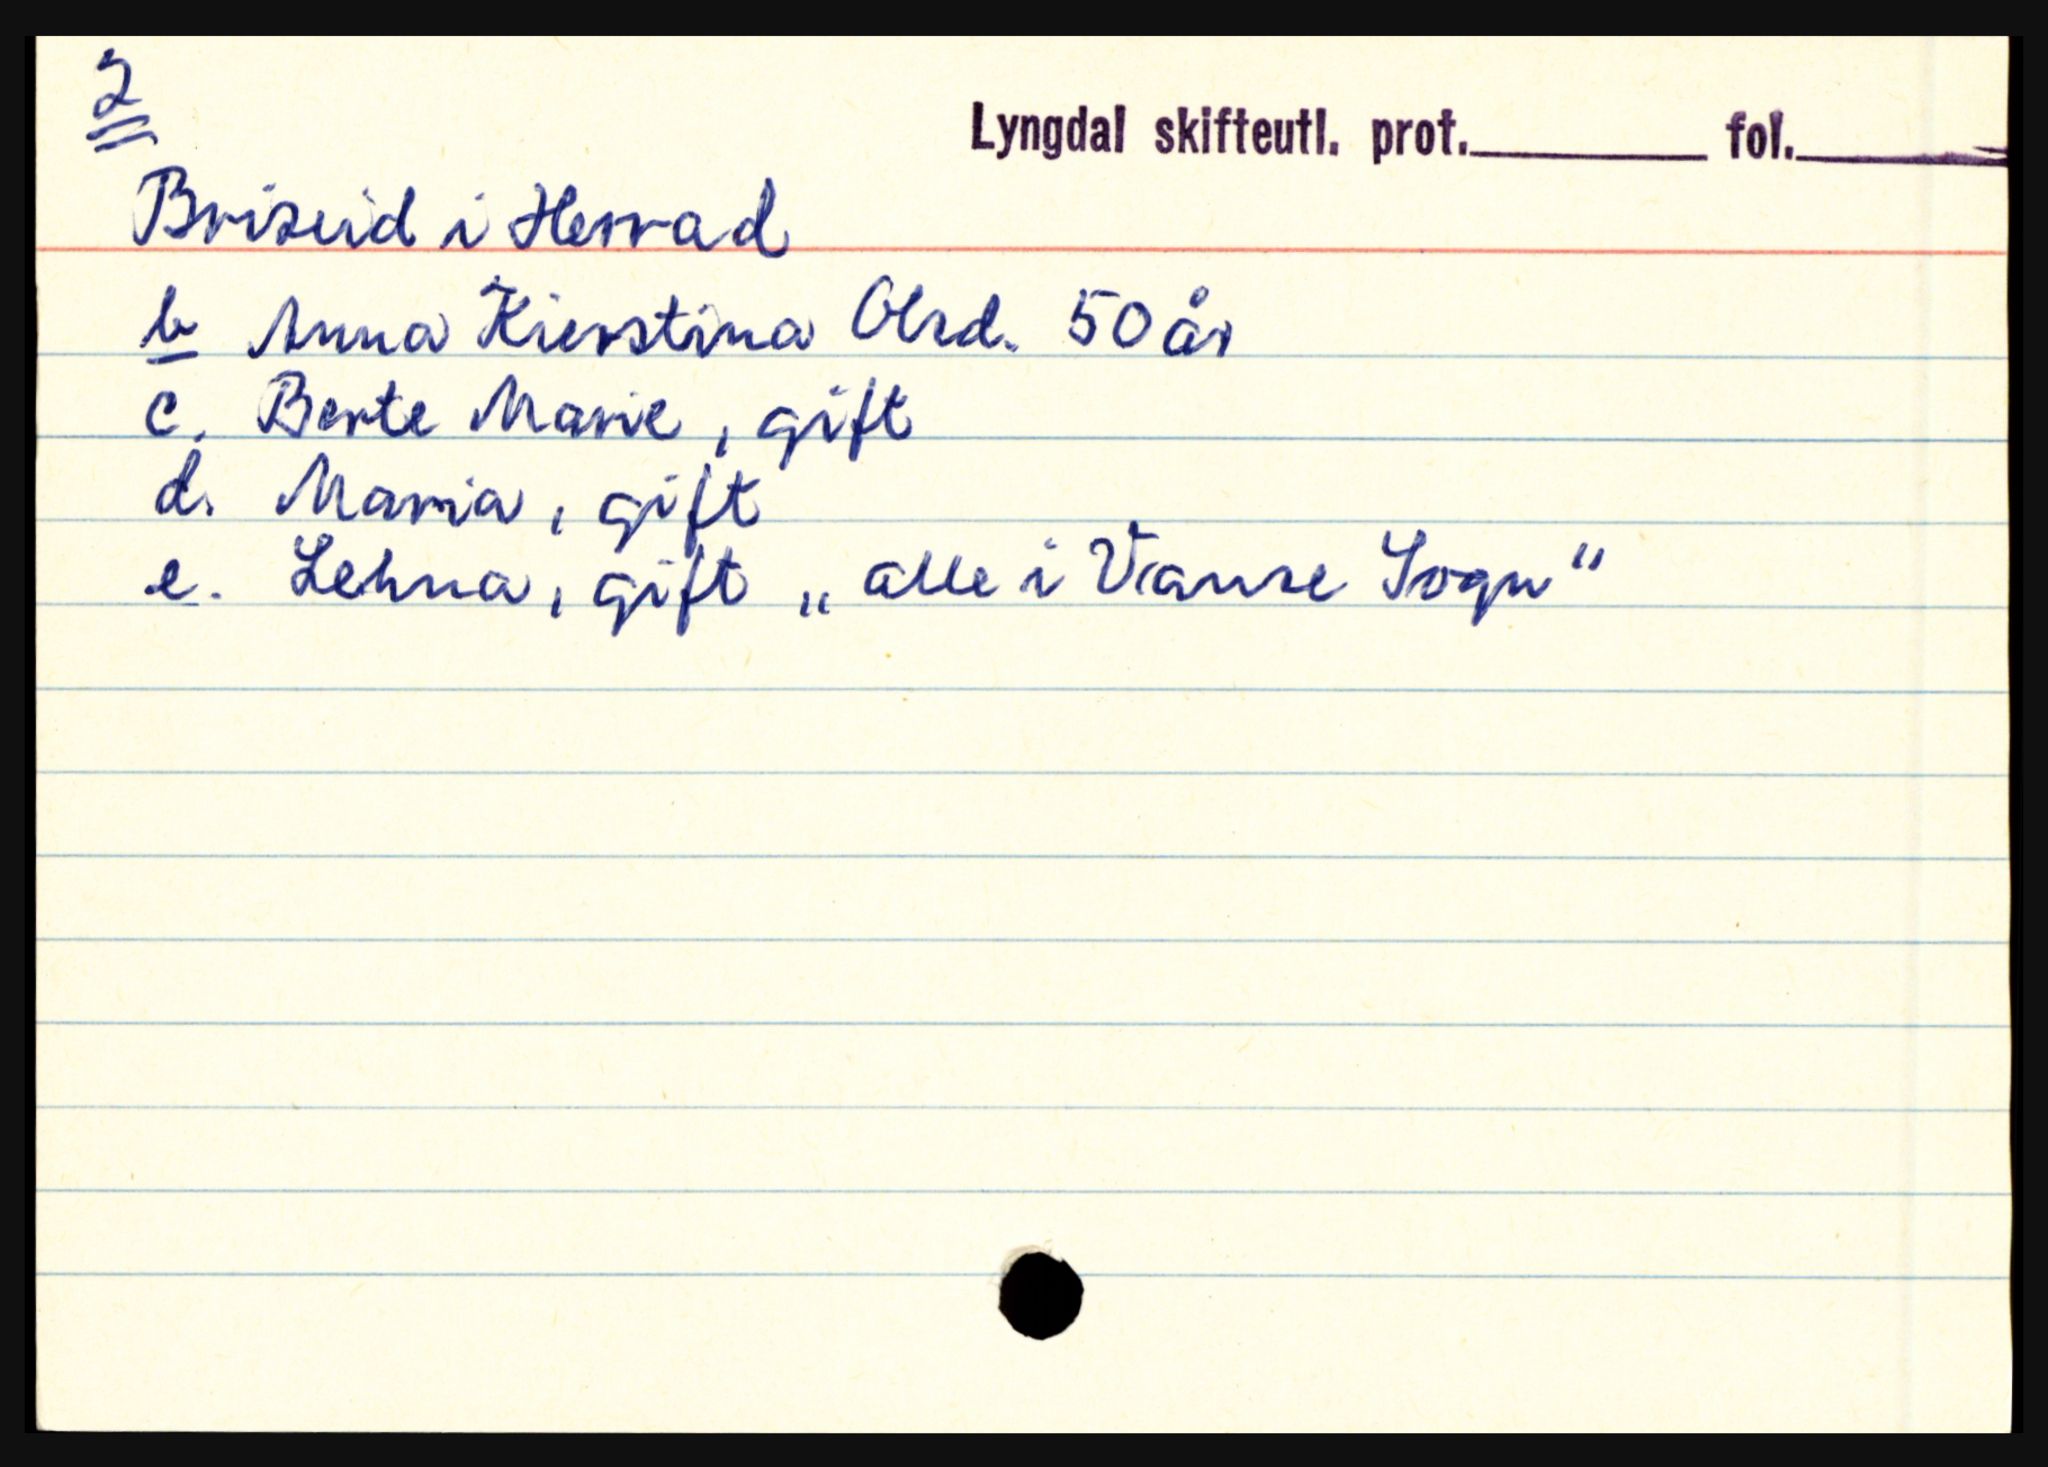 2
Lyngdal skifteutl. prot. fol.
Briseid i Herrad
b Anna Kierstina Olsd. 50 år
c. Berte Marie, gift
d. Maria, gift
e. Lehna, gift „alle i Vanse Sogn“